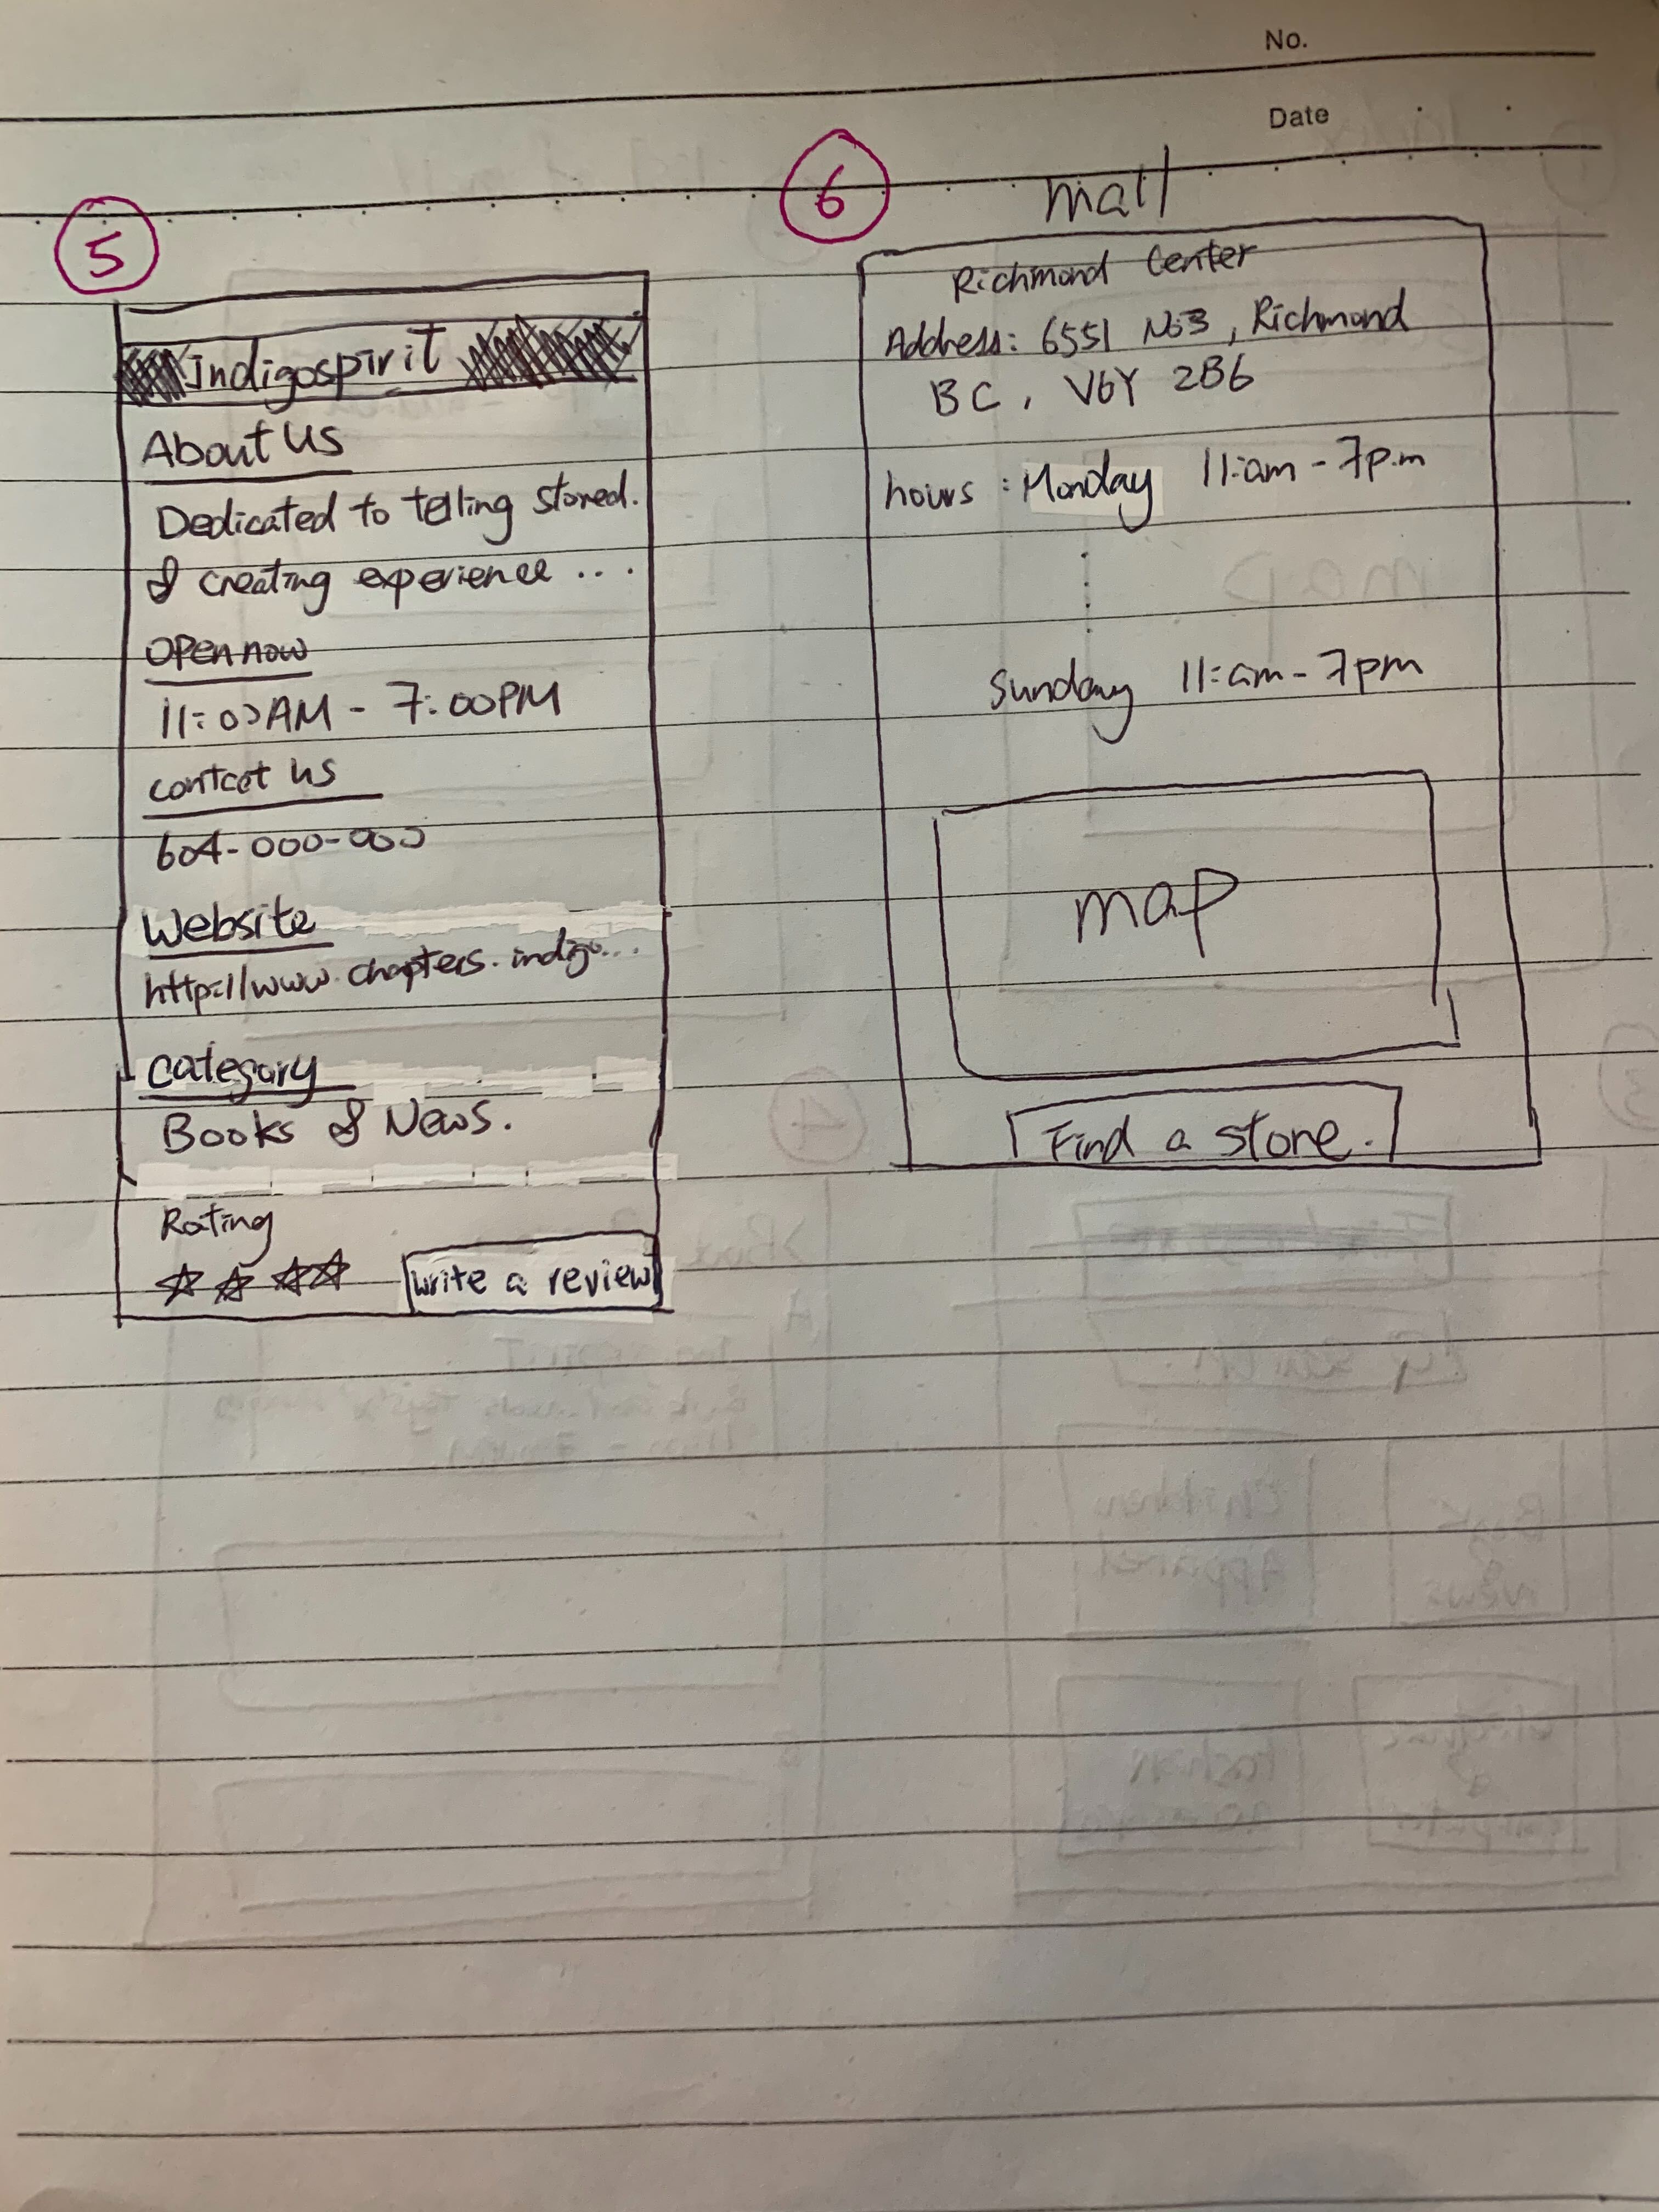 No.
Date
5
Indigospirit
About Us
Dedicated to telling stored.
& creating experience ...
Open now
11:00AM - 7:00PM
contcet us
604-000-000
Website
http://www.chapters.indigo...
Category
Books & News.
Rating
Write a review
6
mall
Richmond Center
Address: 6551 No3, Richmond
BC, V6Y 2B6
hours: Monday 11:am - 7p.m
Sunday 11:am - 7pm
map
Find a store.